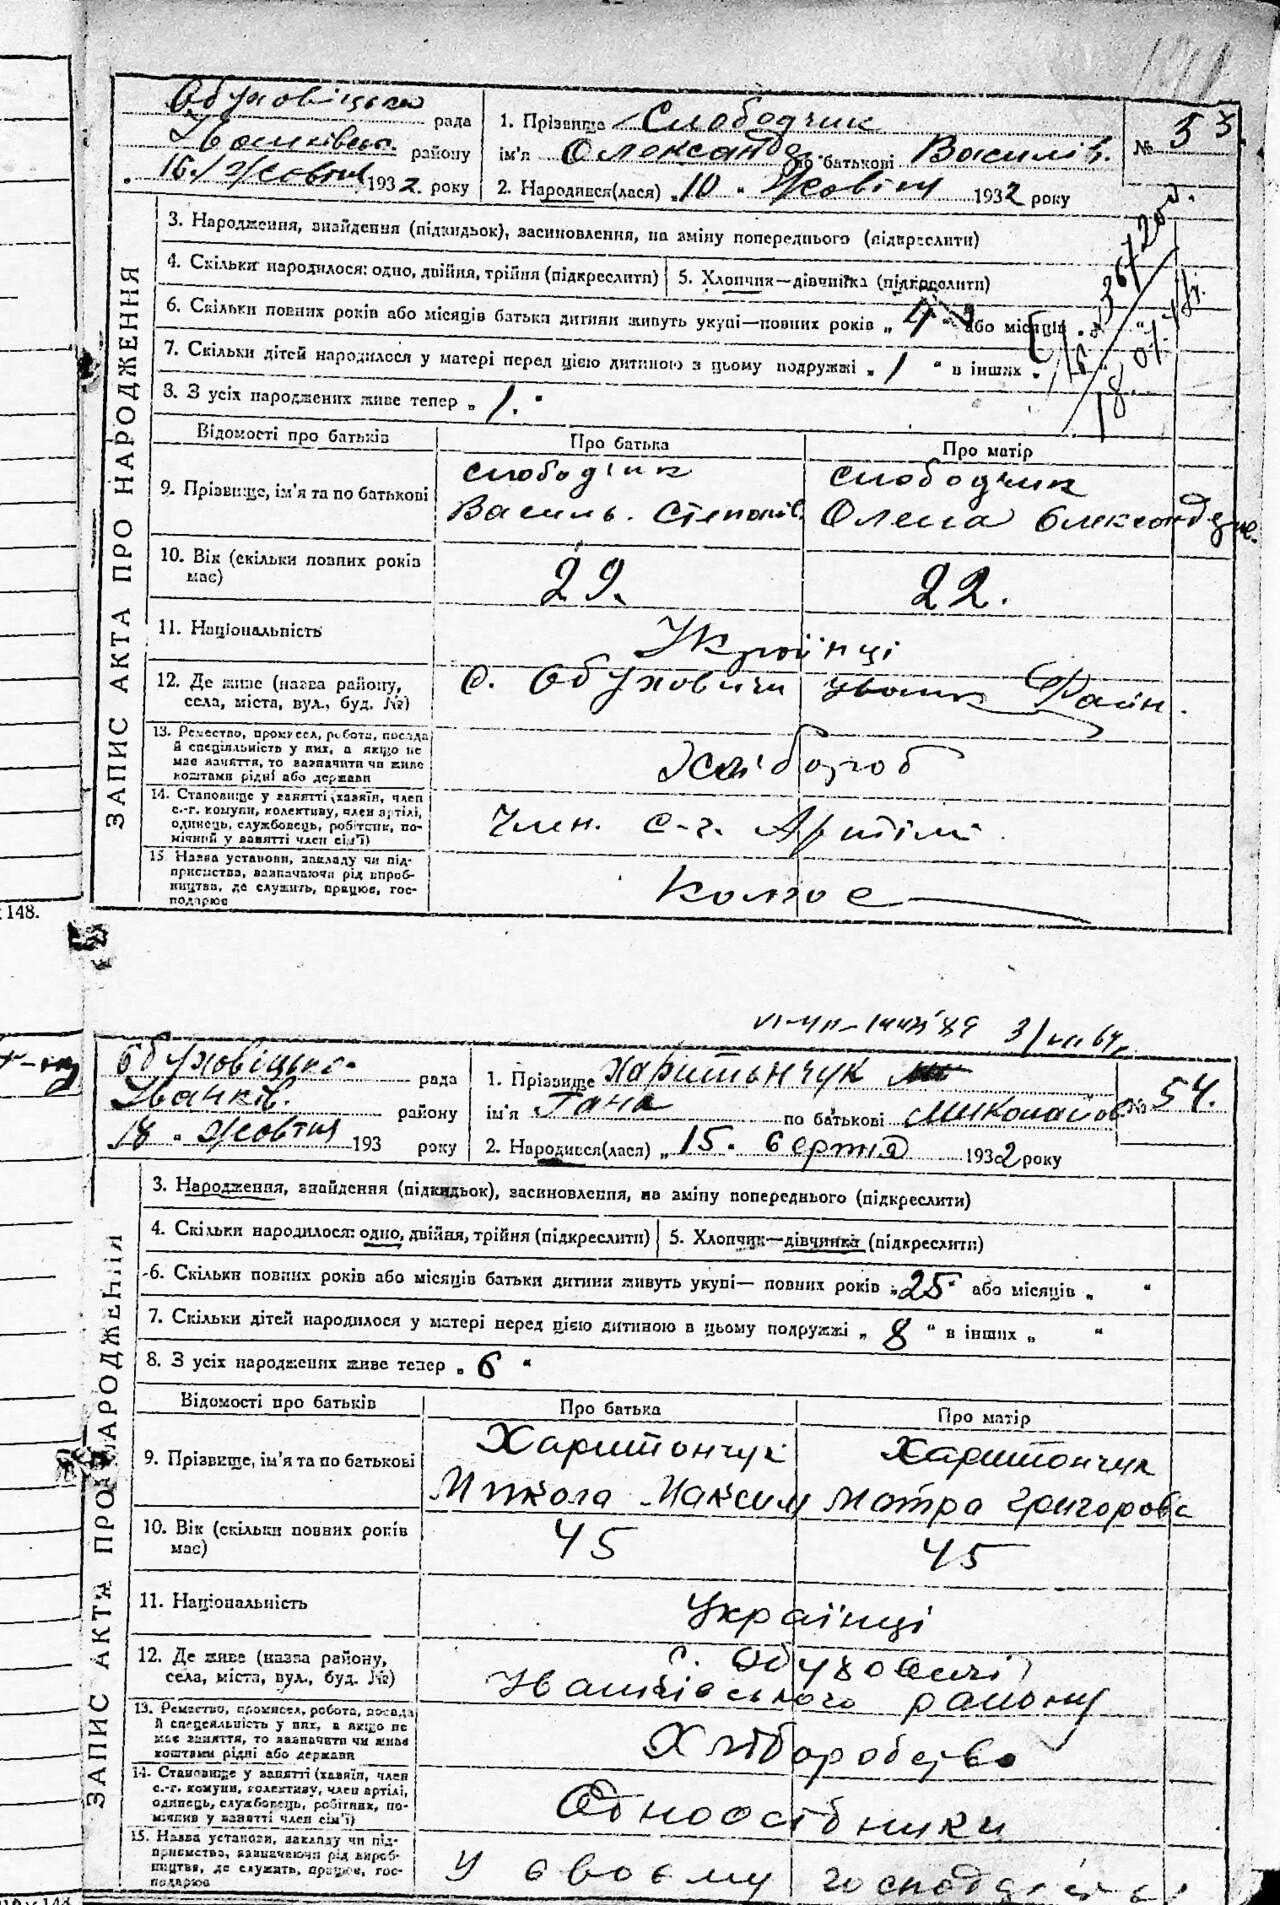 Обуховіцька рада
Іванківськ. району
16 / Жовтня 1932 року
1. Прізвище Слободчик
ім'я Олександр по батькові Василів.
2. Народився(лася) „10" Жовтня 1932 року
№ 53.
ЗАПИС АКТА ПРО НАРОДЖЕННЯ
3. Народження, знайдення (підкидьок), засиновлення, на зміну попереднього (підкреслити)
4. Скільки народилося: одно, двійня, трійня (підкреслити) 5. Хлопчик—дівчинка (підкреслити)
6. Скільки повних років або місяців батьки дитини живуть укупі—повних років „4" або місяців
7. Скільки дітей народилося у матері перед цією дитиною з цьому подружжі „1" в інших „
8. З усіх народжених живе тепер „1."
Відомості про батьків Про батька Про матір
9. Прізвище, ім'я та по батькові
Слободчик Слободчик
Василь. Степанів. Олена Олександрів.
10. Вік (скільки повних років має) 29. 22.
11. Національність Українці
12. Де живе (назва району, села, міста, вул., буд. №) с. Обуховичи Іванк Район.
13. Ремество, промисел, робота, посада
й спеціяльність у них, а якщо не
має заняття, то зазначити чи живе
коштами рідні або держави
Хлібороб
14. Становище у занятті (хазяїн, член
с.-г. комуни, колективу, член артілі,
одинець, службовець, робітник, по-
мічний у занятті член сім'ї)
Член. с-г. Артілі
15. Назва установи, закладу чи під-
приємства, зазначаючи рід вироб-
ництва, де служить, працює, гос-
подарює
Колгос
148.
Обуховіцька рада
Іванків. району
18 " Жовтня 193 року
1. Прізвище Харитончук
ім'я Гана по батькові Миколайов
2. Народився(лася) „15. Серпня 1932 року
№ 54.
ЗАПИС АКТА ПРО НАРОДЖЕННЯ
3. Народження, знайдення (підкидьок), засиновлення, на зміну попереднього (підкреслити)
4. Скільки народилося: одно, двійня, трійня (підкреслити) 5. Хлопчик—дівчинка (підкреслити)
6. Скільки повних років або місяців батьки дитини живуть укупі— повних років „25" або місяців „ "
7. Скільки дітей народилося у матері перед цією дитиною в цьому подружжі „8" в інших „ "
8. З усіх народжених живе тепер „6"
Відомості про батьків Про батька Про матір
9. Прізвище, ім'я та по батькові
Харитончук Харитончук
Микола Максим Мотра Григорова
10. Вік (скільки повних років має) 45 45
11. Національність українці
12. Де живе (назва району, села, міста, вул., буд. №)
с. Обуховичі
Іванківського району
13. Ремество, промисел, робота, посада
й спецеяльність у них, а якщо не
має заняття, то зазначити чи живе
коштами рідні або держави
Хліборобство
14. Становище у занятті (хазяїн, член
с.-г. комуни, колективу, член артілі,
одинець, службовець, робітник, по-
мічний у занятті член сім'ї)
Одноосібники
15. Назва установи, закладу чи під-
приємства, зазначаючи рід вироб-
ництва, де служить, працює, гос-
подарює
У своєму